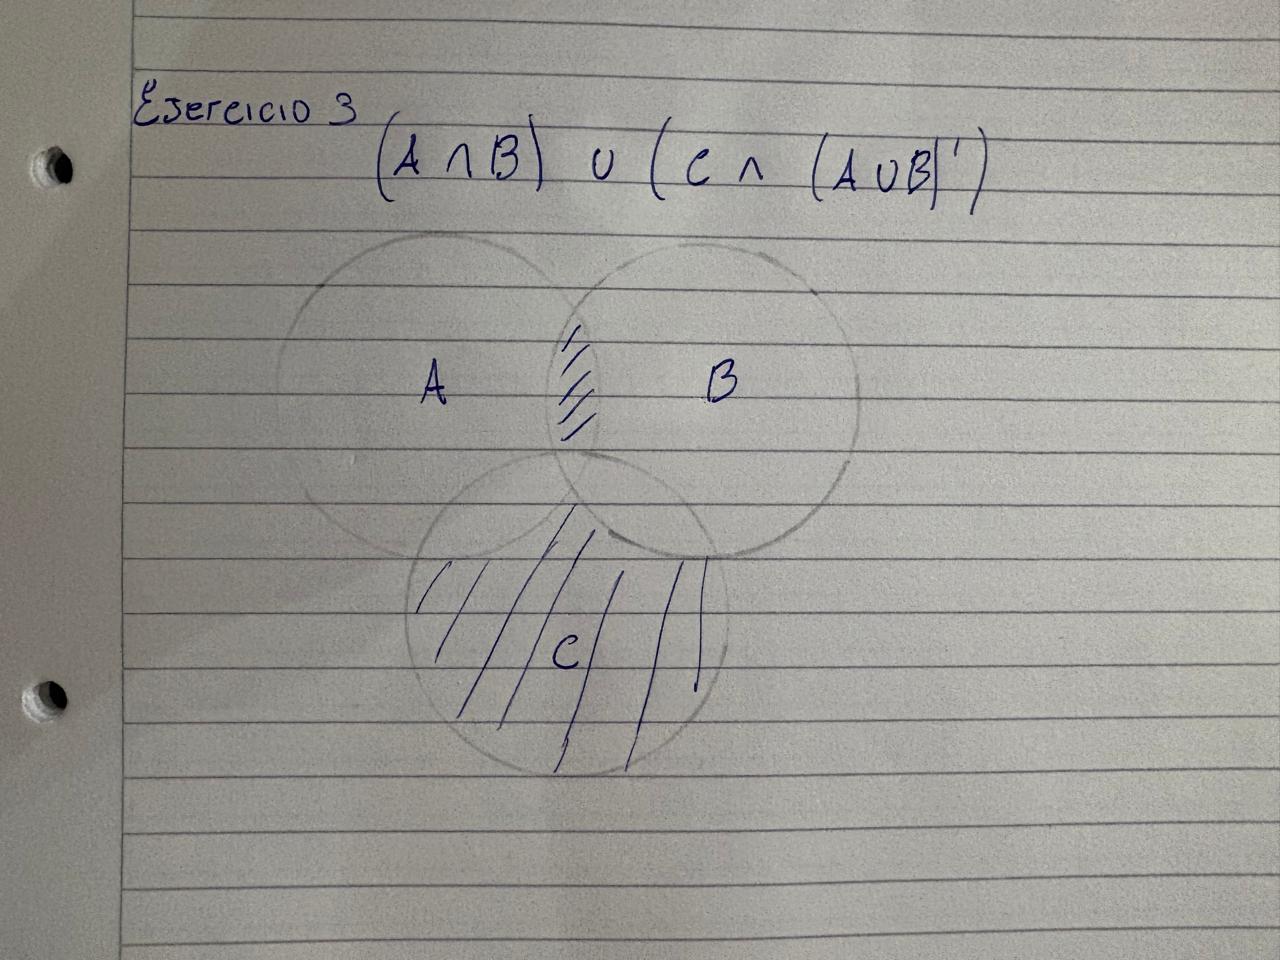 Ejercicio 3
(A ∩ B) ∪ (C ∩ (A ∪ B)')
A
B
C